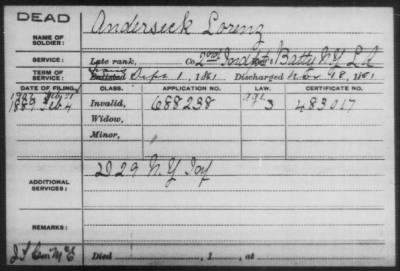 DEAD
NAME OF SOLDIER:
Anderseck Lorenz
SERVICE:
Late rank, Co. 2nd Indpt Batty N.Y. L A
TERM OF SERVICE:
Enlisted Sept 1, 1861 Discharged Nov 18, 1861
DATE OF FILING. CLASS. APPLICATION NO. LAW. CERTIFICATE NO.
1889 Feb 4 Invalid, 688238 3 483017
Widow,
Minor,
ADDITIONAL SERVICES:
D 29 N.Y. Inf
REMARKS:
Died , 1 , at